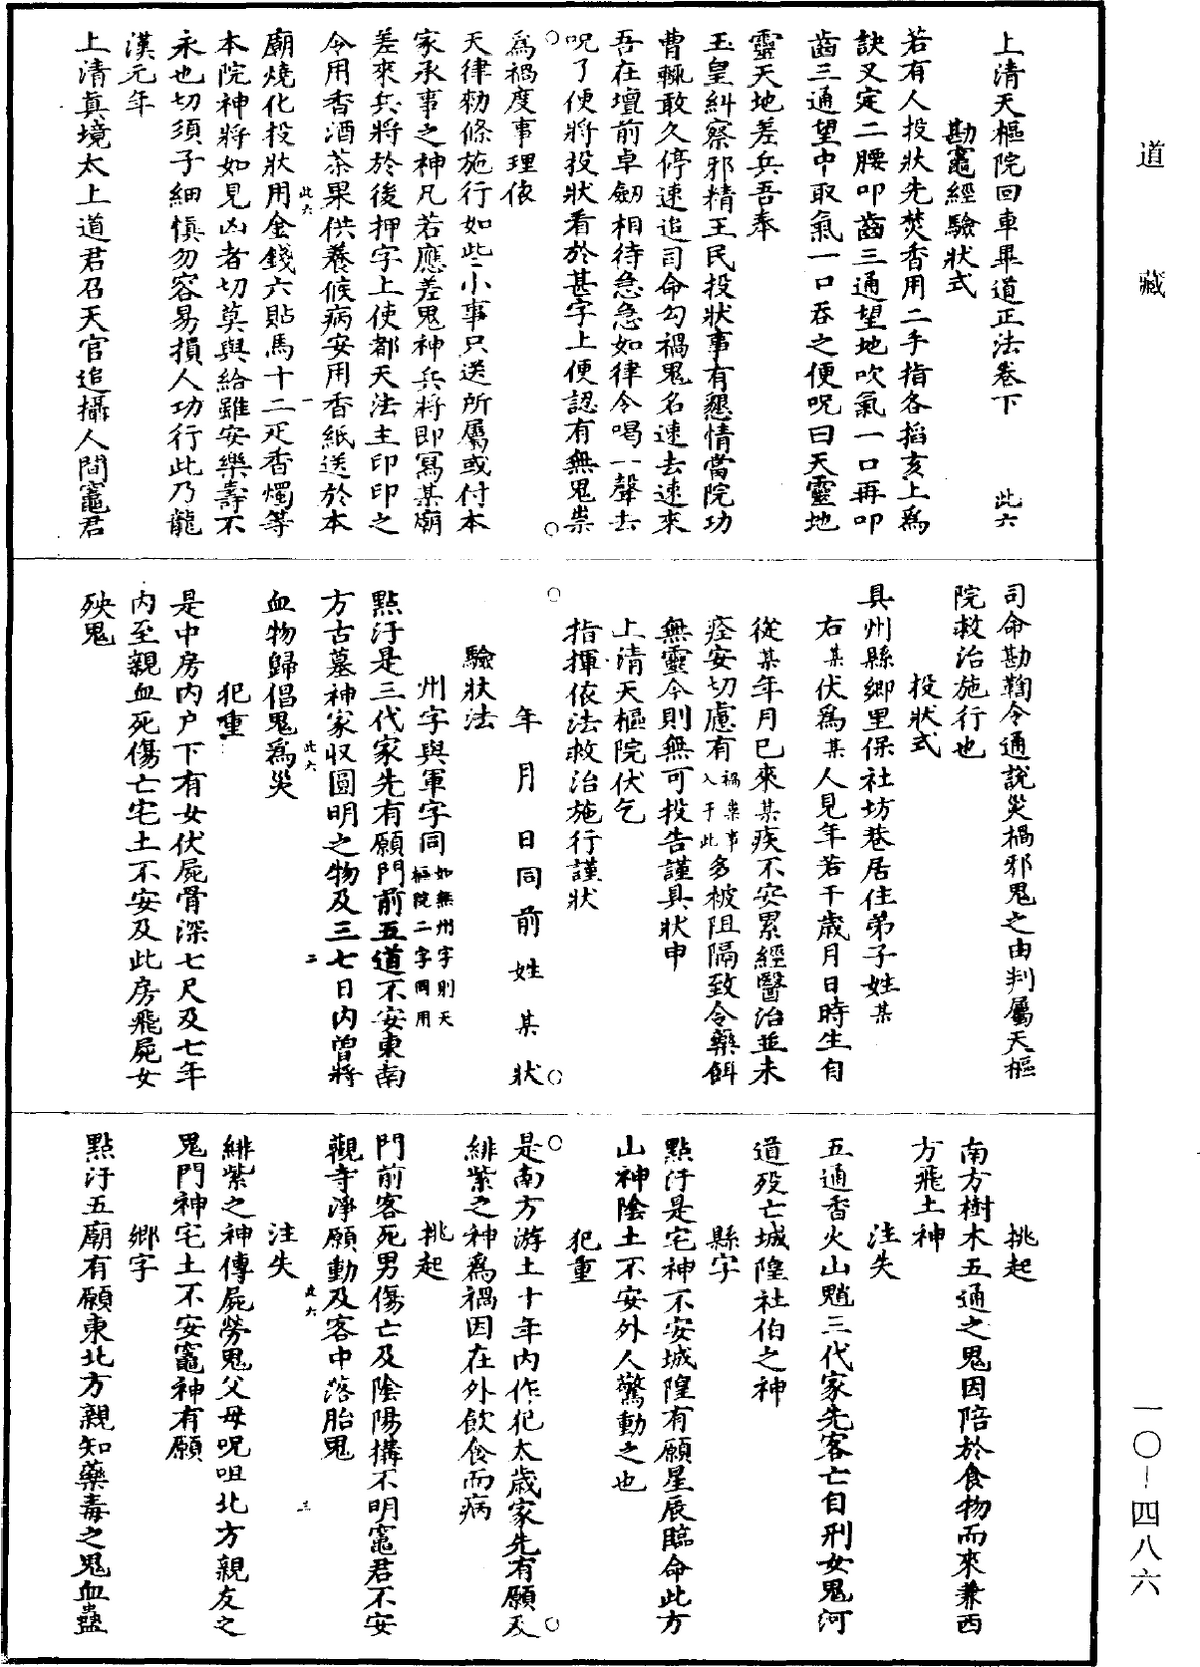 道藏
一〇—四八六
上清天樞院回車畢道正法卷下　此六
勘竈經驗狀式
若有人投狀先焚香用二手指各搯亥上爲
訣叉定二腰叩齒三通望地吹氣一口再叩
齒三通望中取氣一口吞之便呪曰天靈地
靈天地差兵吾奉
玉皇糾察邪精王民投狀事有懇情當院功
曹輒敢久停速追司命勾禍鬼名速去速來
吾在壇前卓劒相待急急如律令喝一聲去
呪了便將投狀看於甚字上便認有無鬼祟
爲禍度事理依
天律勑條施行如些小事只送所屬或付本
家承事之神凡若應差鬼神兵將即寫某廟
差來兵將於後押字上使都天法主印印之
令用香酒茶果供養候病安用香紙送於本
廟燒化投狀用金錢六貼馬十二疋香燭等
此六　一
本院神將如見凶者切莫與給雖安樂壽不
永也切須子細愼勿容易損人功行此乃龍
漢元年
上清眞境太上道君召天官追攝人間竈君
司命勘鞫令通說災禍邪鬼之由判屬天樞
院救治施行也
投狀式
具州縣鄉里保社坊巷居住弟子姓某
右某伏爲某人見年若干歲月日時生自
從某年月已來某疾不安累經醫治並未
痊安切慮有禍祟事入于此多被阻隔致令藥餌
無靈今則無可投告謹具狀申
上清天樞院伏乞
指揮依法救治施行謹狀
年　月　日同前姓某狀
驗狀法
州字與軍字同如無州字則天樞院二字同用
點汙是三代家先有願門前五道不安東南
方古墓神家収圓明之物及三七日內曾將
血物歸倡鬼爲災
此六　二
犯重
是中房內户下有女伏屍骨深七尺及七年
內至親血死傷亡宅土不安及此房飛屍女
殃鬼
挑起
南方樹木五通之鬼因陪於食物而來兼西
方飛土神
注失
五通香火山魈三代家先客亡自刑女鬼河
道歿亡城隍社伯之神
縣字
點汙是宅神不安城隍有願星辰臨命此方
山神陰土不安外人驚動之也
犯重
是南方游土十年內作犯太歲家先有願及
緋紫之神爲禍因在外飲食而病
挑起
門前客死男傷亡及陰陽搆不明竈君不安
觀寺淨願動及客中落胎鬼
此六　三
注失
緋紫之神傳屍勞鬼父母呪咀北方親友之
鬼門神宅土不安竈神有願
鄉字
點汙五廟有願東北方親知藥毒之鬼血蠱